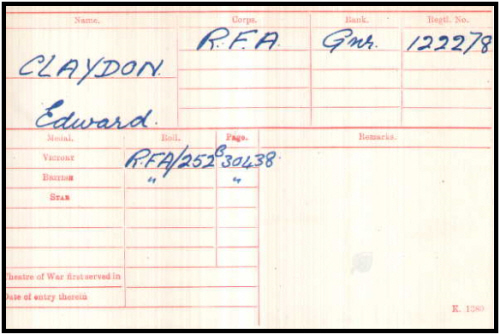 Name. Corps. Rank. Regtl. No.
R.F.A. Gnr. 122278
CLAYDON.
Edward.
Medal. Roll. Page. Remarks.
VICTORY R.F.A/252B 30438.
BRITISH " "
STAR
Theatre of War first served in
Date of entry therein
K. 1380.